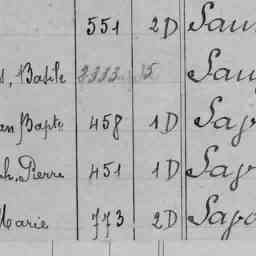 551 2D Sau
, Basile 3333 15 Sau
an Bapte 458 1D Sap
h, Pierre 451 1D Sap
Marie 773 2D Sapo